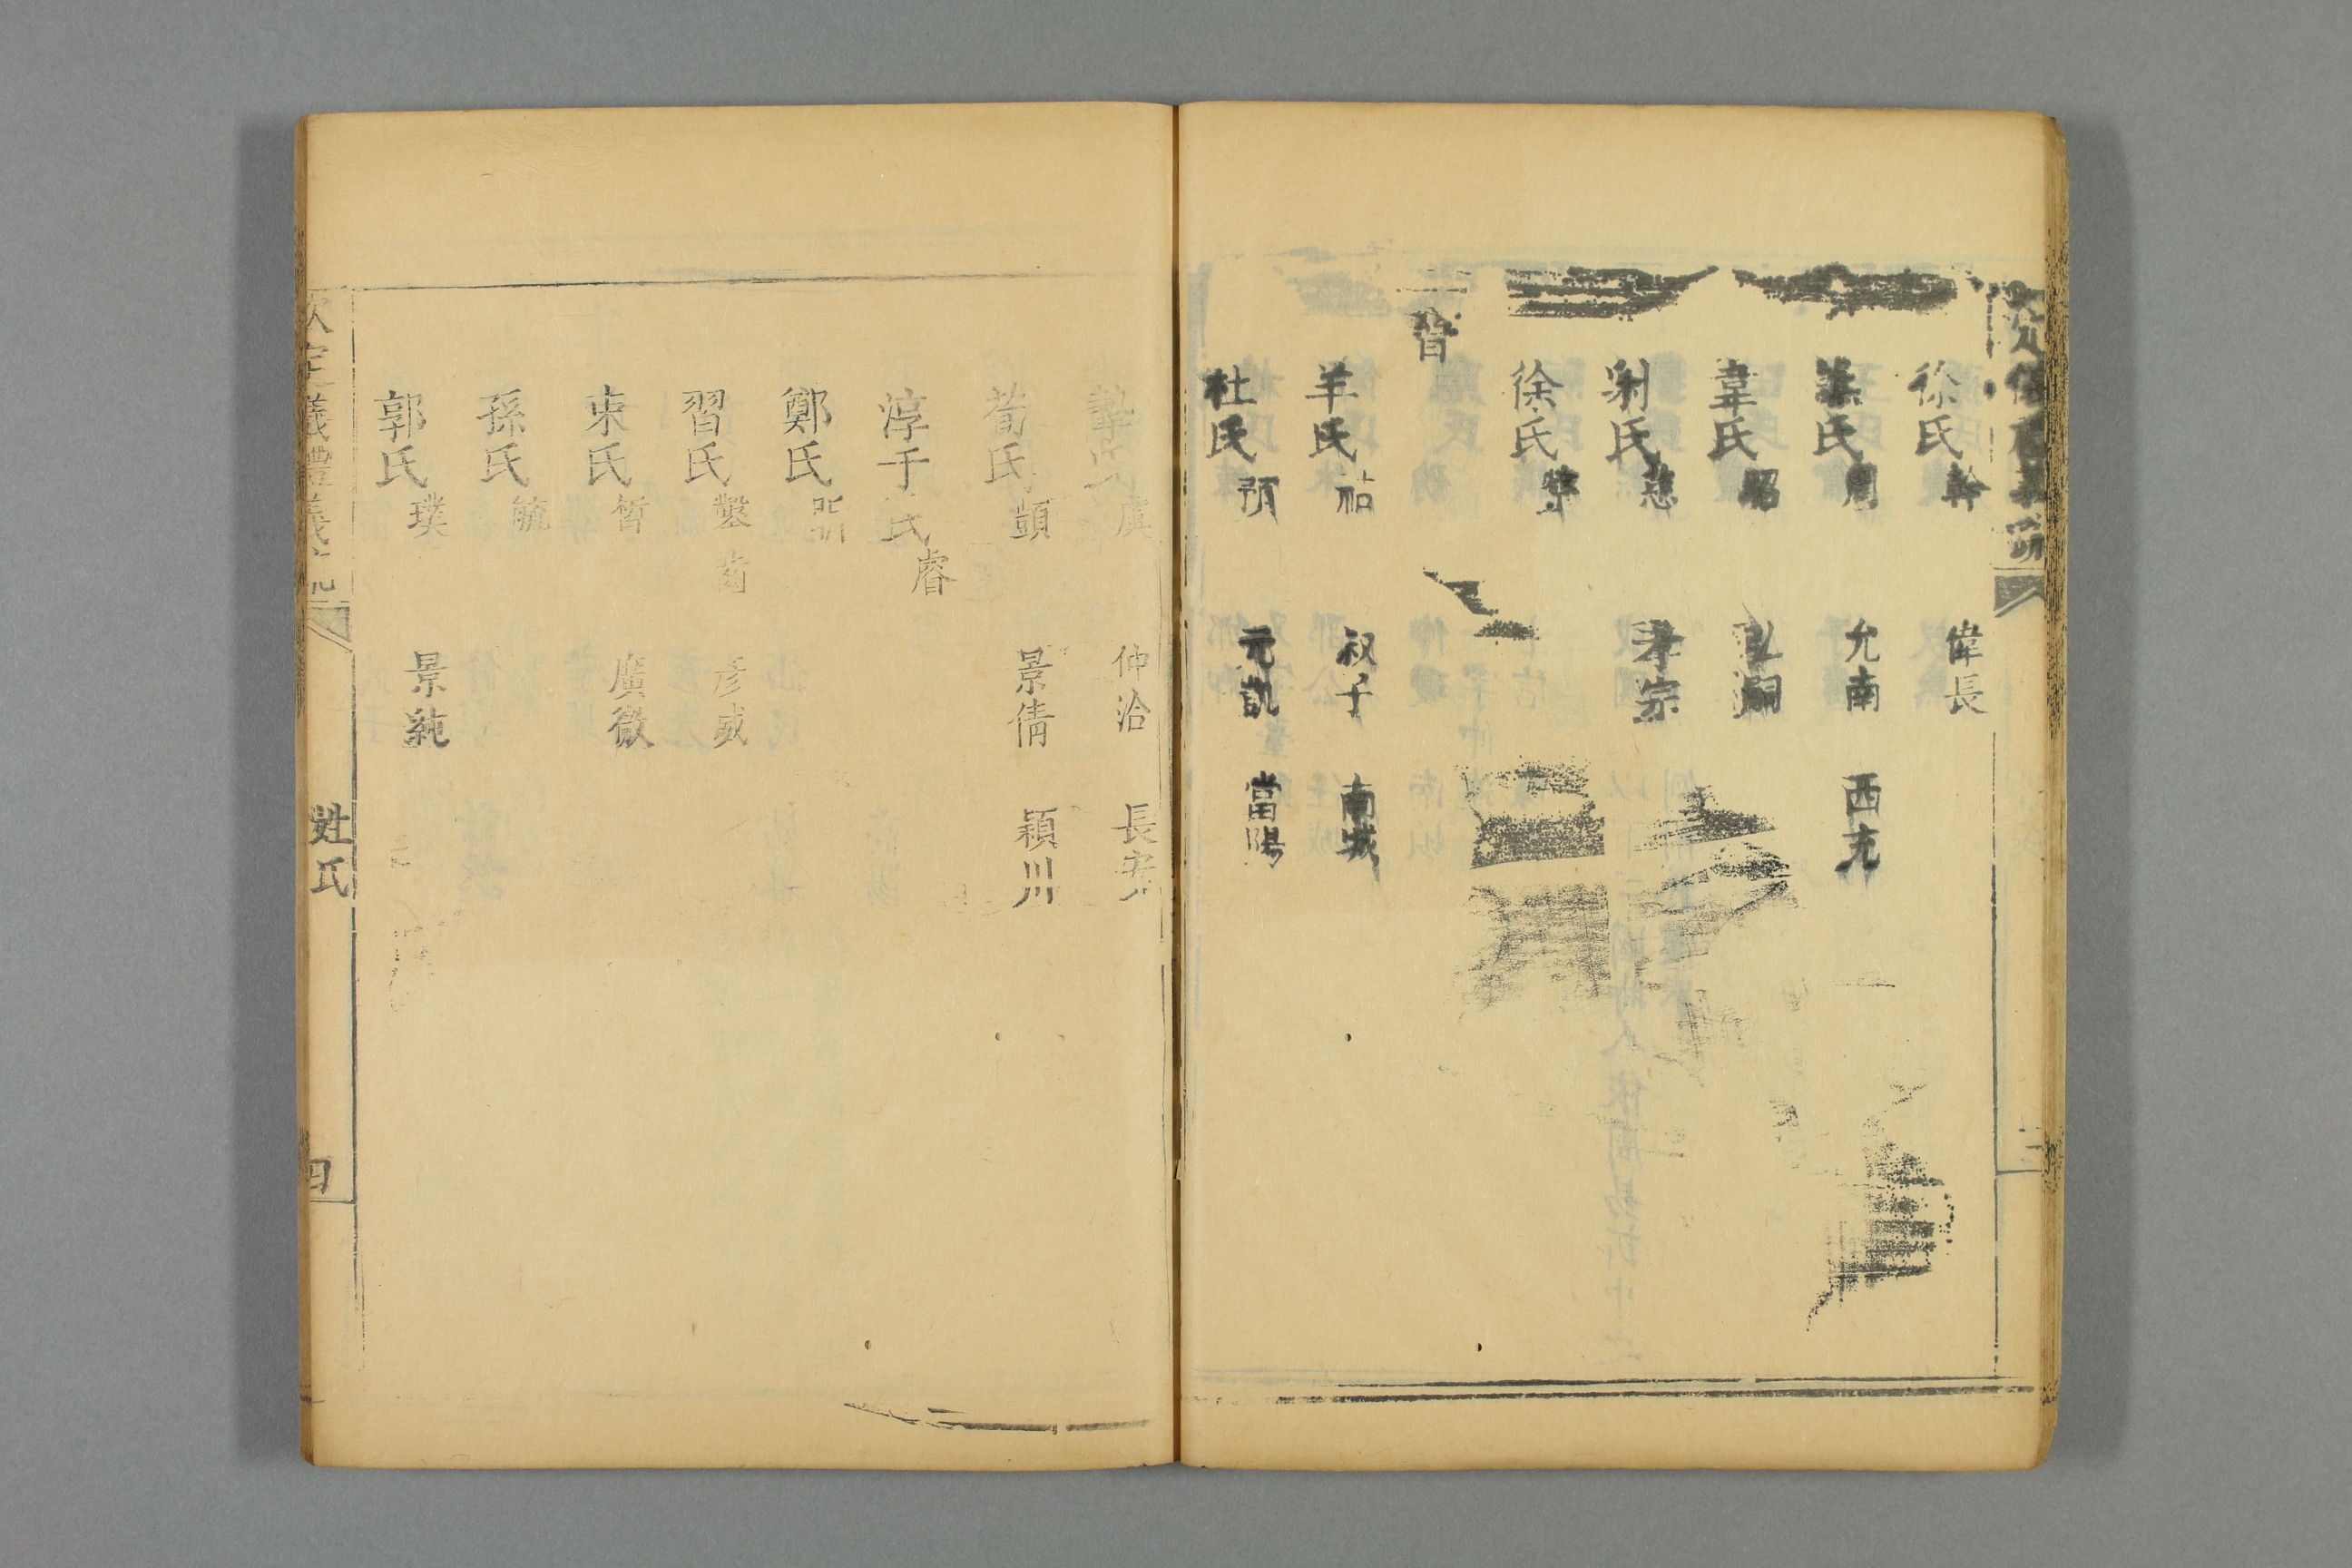 徐氏幹 偉長
譙氏周 允南 西充
韋氏昭 弘嗣
劉氏悲 孝宗
徐氏整
晉
羊氏祜 叔子 南城
杜氏預 元凱 當陽
虞 仲洽 長安
荀氏顗 景倩 穎川
淳于氏睿
鄭氏昕
習氏鑿齒 彥威
束氏晳 廣微
孫氏毓
郭氏璞 景純
姓氏 四